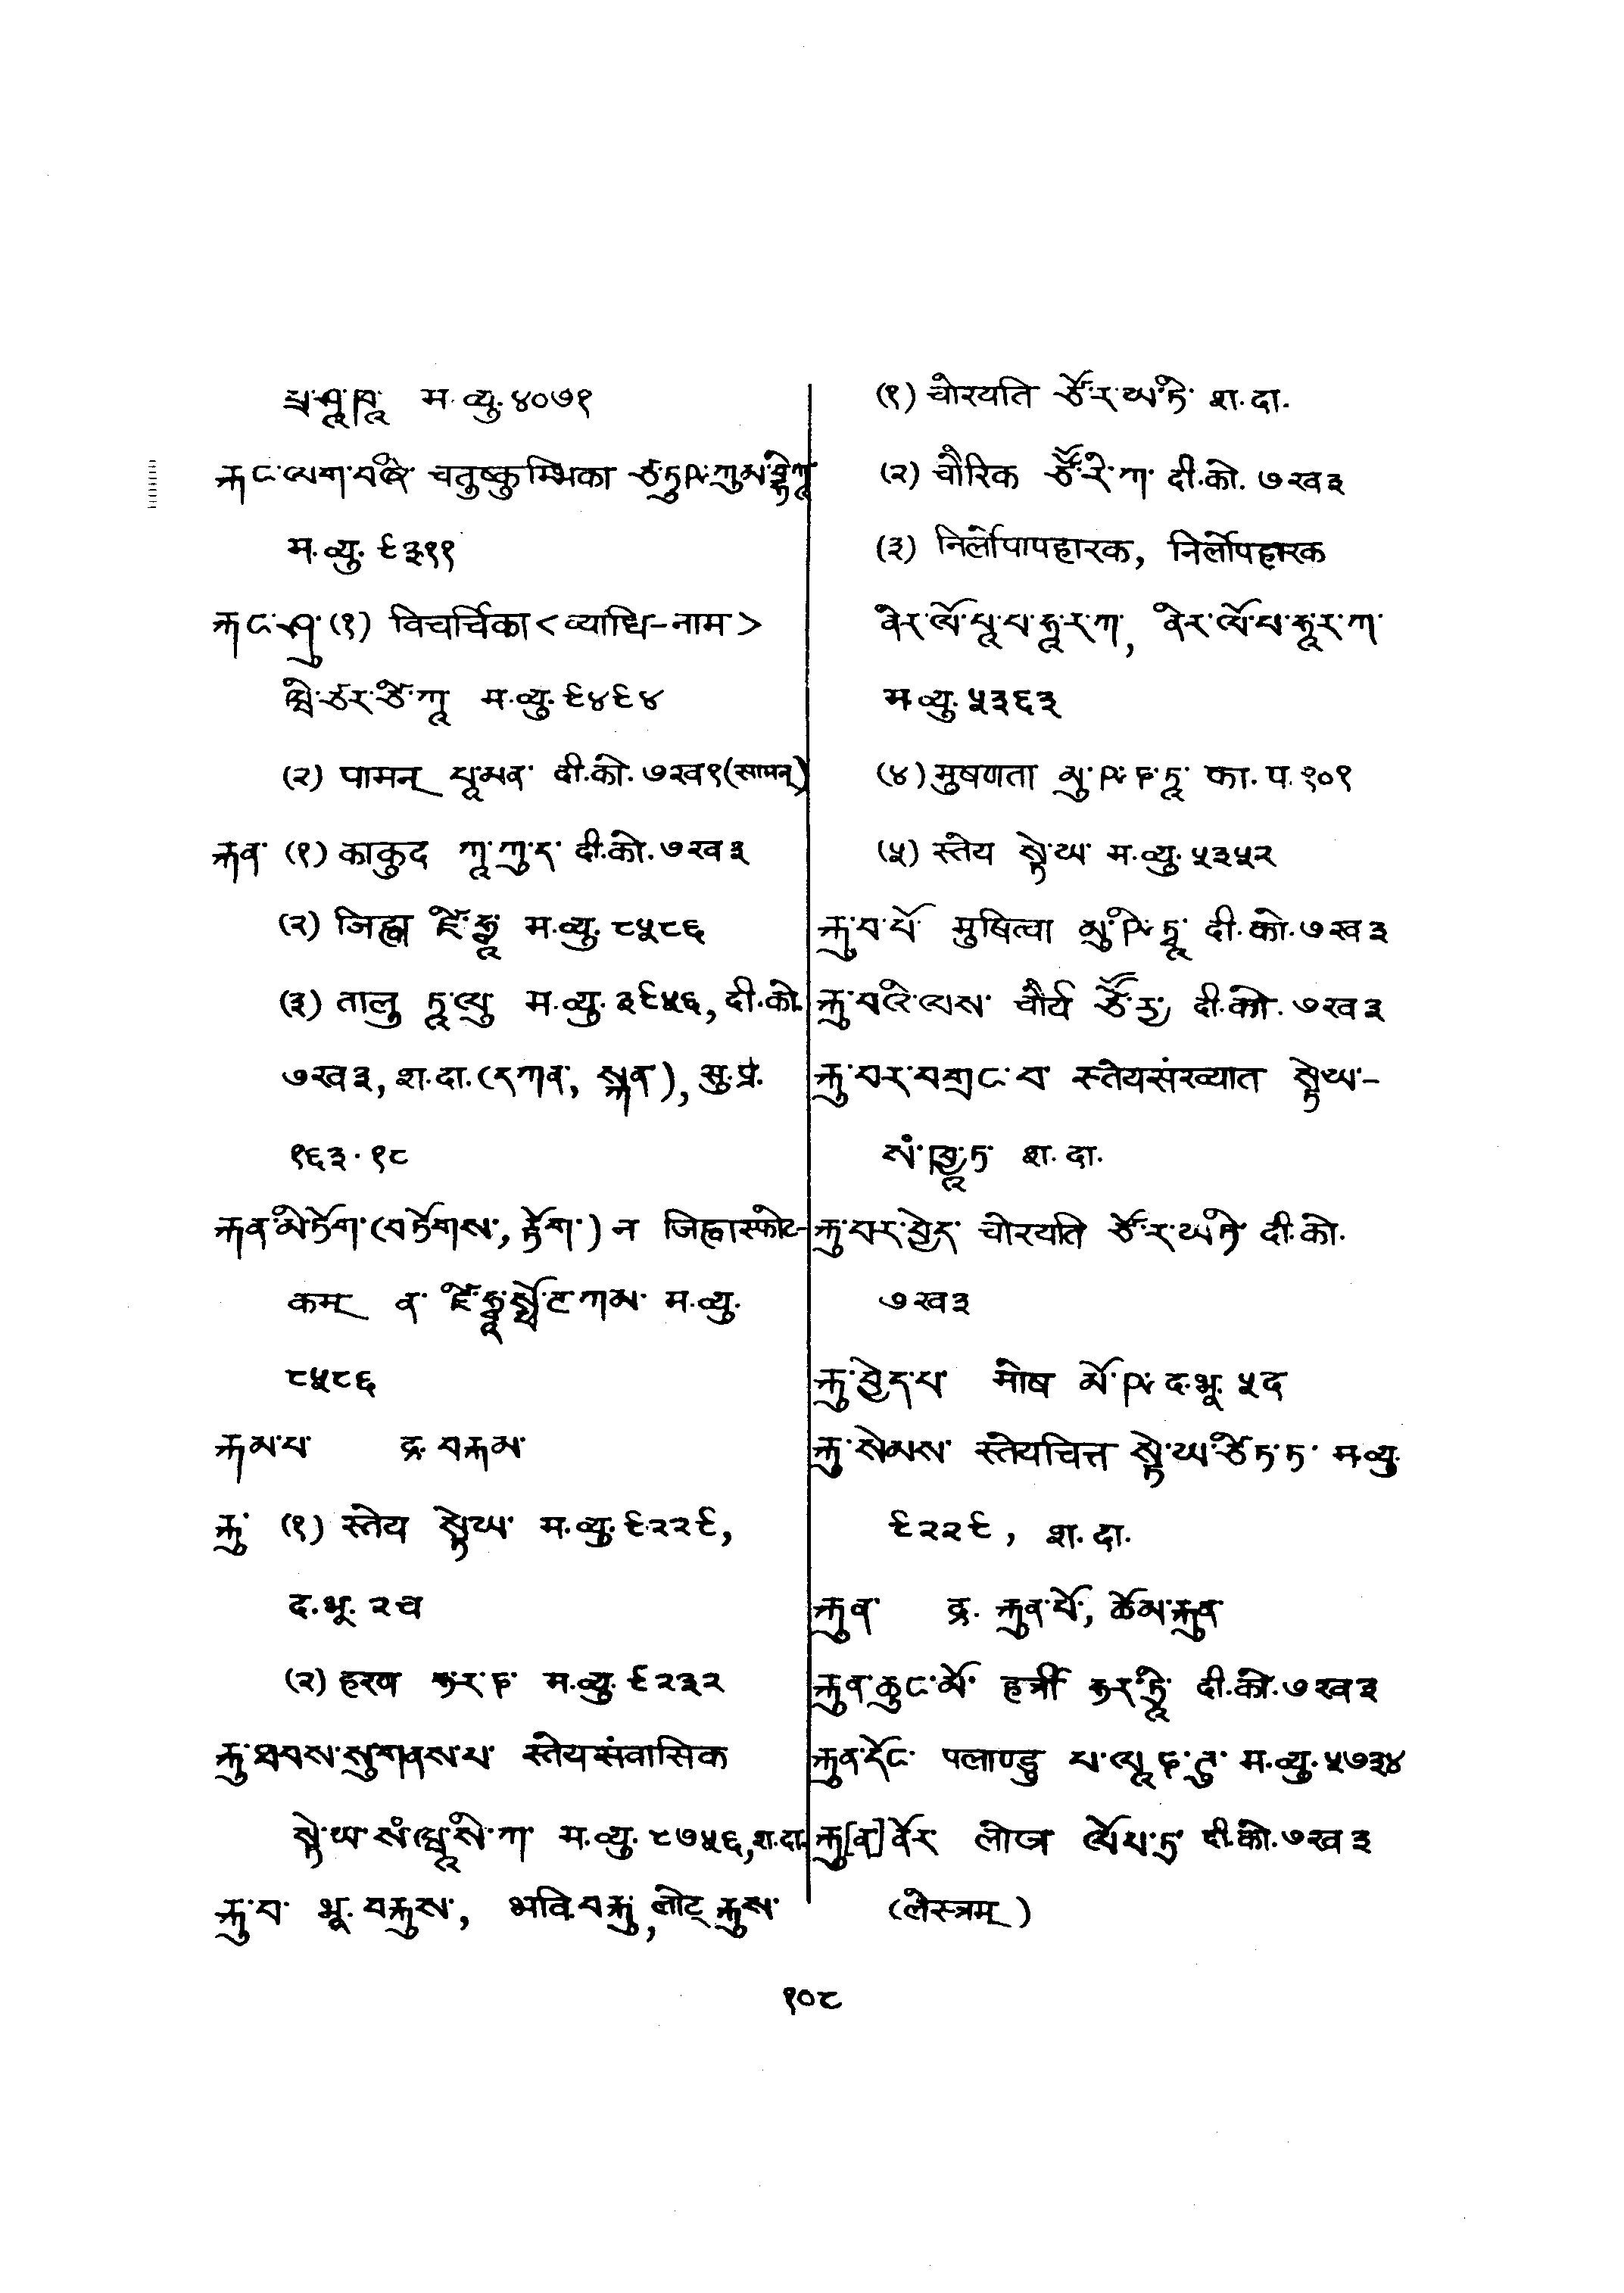 པྲ་ཤཱ་ཁཱ म.व्यु.४०७१
རྐང་ལག་བཞི चतुष्कुम्भिका ཙ་ཏུཥ་ཀུམ་བྷི་ཀཱ
म.व्यु. ९३११
རྐང་ཤུ་(१) विचर्चिका <व्याधि-नाम>
ཝི་ཙར་ཙི་ཀཱ म.व्यु.९४९४
(२) पामन् པཱ་མན་ दी.को.७ख१(सामन्)
རྐན་ (१) काकुद ཀཱ་ཀུ་ད་ दी.को.७ख३
(२) जिह्वा ཛི་ཧྭཱ་ म.व्यु.८५८६
(३) तालु ཏཱ་ལུ म.व्यु.३९५६, दी.को.
७ख३, श.दा.(དཀན་, སྐན་), सु.प्र.
१६३.१८
རྐན་མི་ཏོག་(བཏོགས་, རྟོག་) न जिह्वास्फोट-
कम् ན་ ཛི་ཧྭཱ་སྥོ་ཊ་ཀམ་ म.व्यु.
८५८६
རྐམ་པ་ द्र. བརྐམ་
རྐུ་ (१) स्तेय སྟེ་ཡ་ म.व्यु.९२२९,
द.भू. २च
(२) हरण ཧ་ར་ཎ་ म.व्यु.९२३२
རྐུ་ཐབས་སུ་གནས་པ་ स्तेयसंवासिक
སྟེ་ཡ་སཾ་ཝཱ་སི་ཀ་ म.व्यु.८७५६,श.दा.
རྐུ་བ་ भू. བརྐུས་, भवि.བརྐུ, लोट् རྐུས་
(१) चोरयति ཙོ་ར་ཡ་ཏི་ श.दा.
(२) चौरिक ཙཽ་རི་ཀ་ दी.को. ७ख३
(३) निर्लोपापहारक, निर्लोपहारक
ནིར་ལོ་པཱ་པ་ཧཱ་ར་ཀ་, ནིར་ལོ་པ་ཧཱ་ར་ཀ་
म.व्यु. ५३६३
(४) मुषणता མུ་ཥ་ཎ་ཏཱ་ का.प.१०१
(५) स्तेय སྟེ་ཡ་ म.व्यु.५३५२
རྐུ་བ་པོ་ मुषित्वा མུ་ཥི་ཏྭཱ་ दी.को.७ख३
རྐུ་བའི་ལས་ चौर्य ཙཽ་རྱ་ दी.को.७ख३
རྐུ་བར་བགྲང་བ་ स्तेयसंख्यात སྟེ་ཡ་-
སཾ་ཁྱཱ་ཏ་ श.दा.
རྐུ་བར་བྱེད་ चोरयति ཙོ་ར་ཡ་ཏི་ दी.को.
७ख३
རྐུ་བྱེད་པ་ मोष མོ་ཥ་ द.भू. ५द
རྐུ་སེམས་ स्तेयचित्त སྟེ་ཡ་ཙིཏ་ཏ་ म.व्यु.
९२२९, श.दा.
རྐུན་ द्र. རྐུན་པོ་, ཆོམ་རྐུན་
རྐུན་ཆུང་མོ་ हर्त्री ཧར་ཏྲཱི་ दी.को.७ख३
རྐུན་དོང་ पलाण्डु པ་ལཱ་ཎ་ཌུ་ म.व्यु.५७३४
རྐུ[ན]ནོར་ लोप्त्र ལོ་པ་ཏྲ་ दी.को.७ख३
(लेस्त्रम्)
१०८